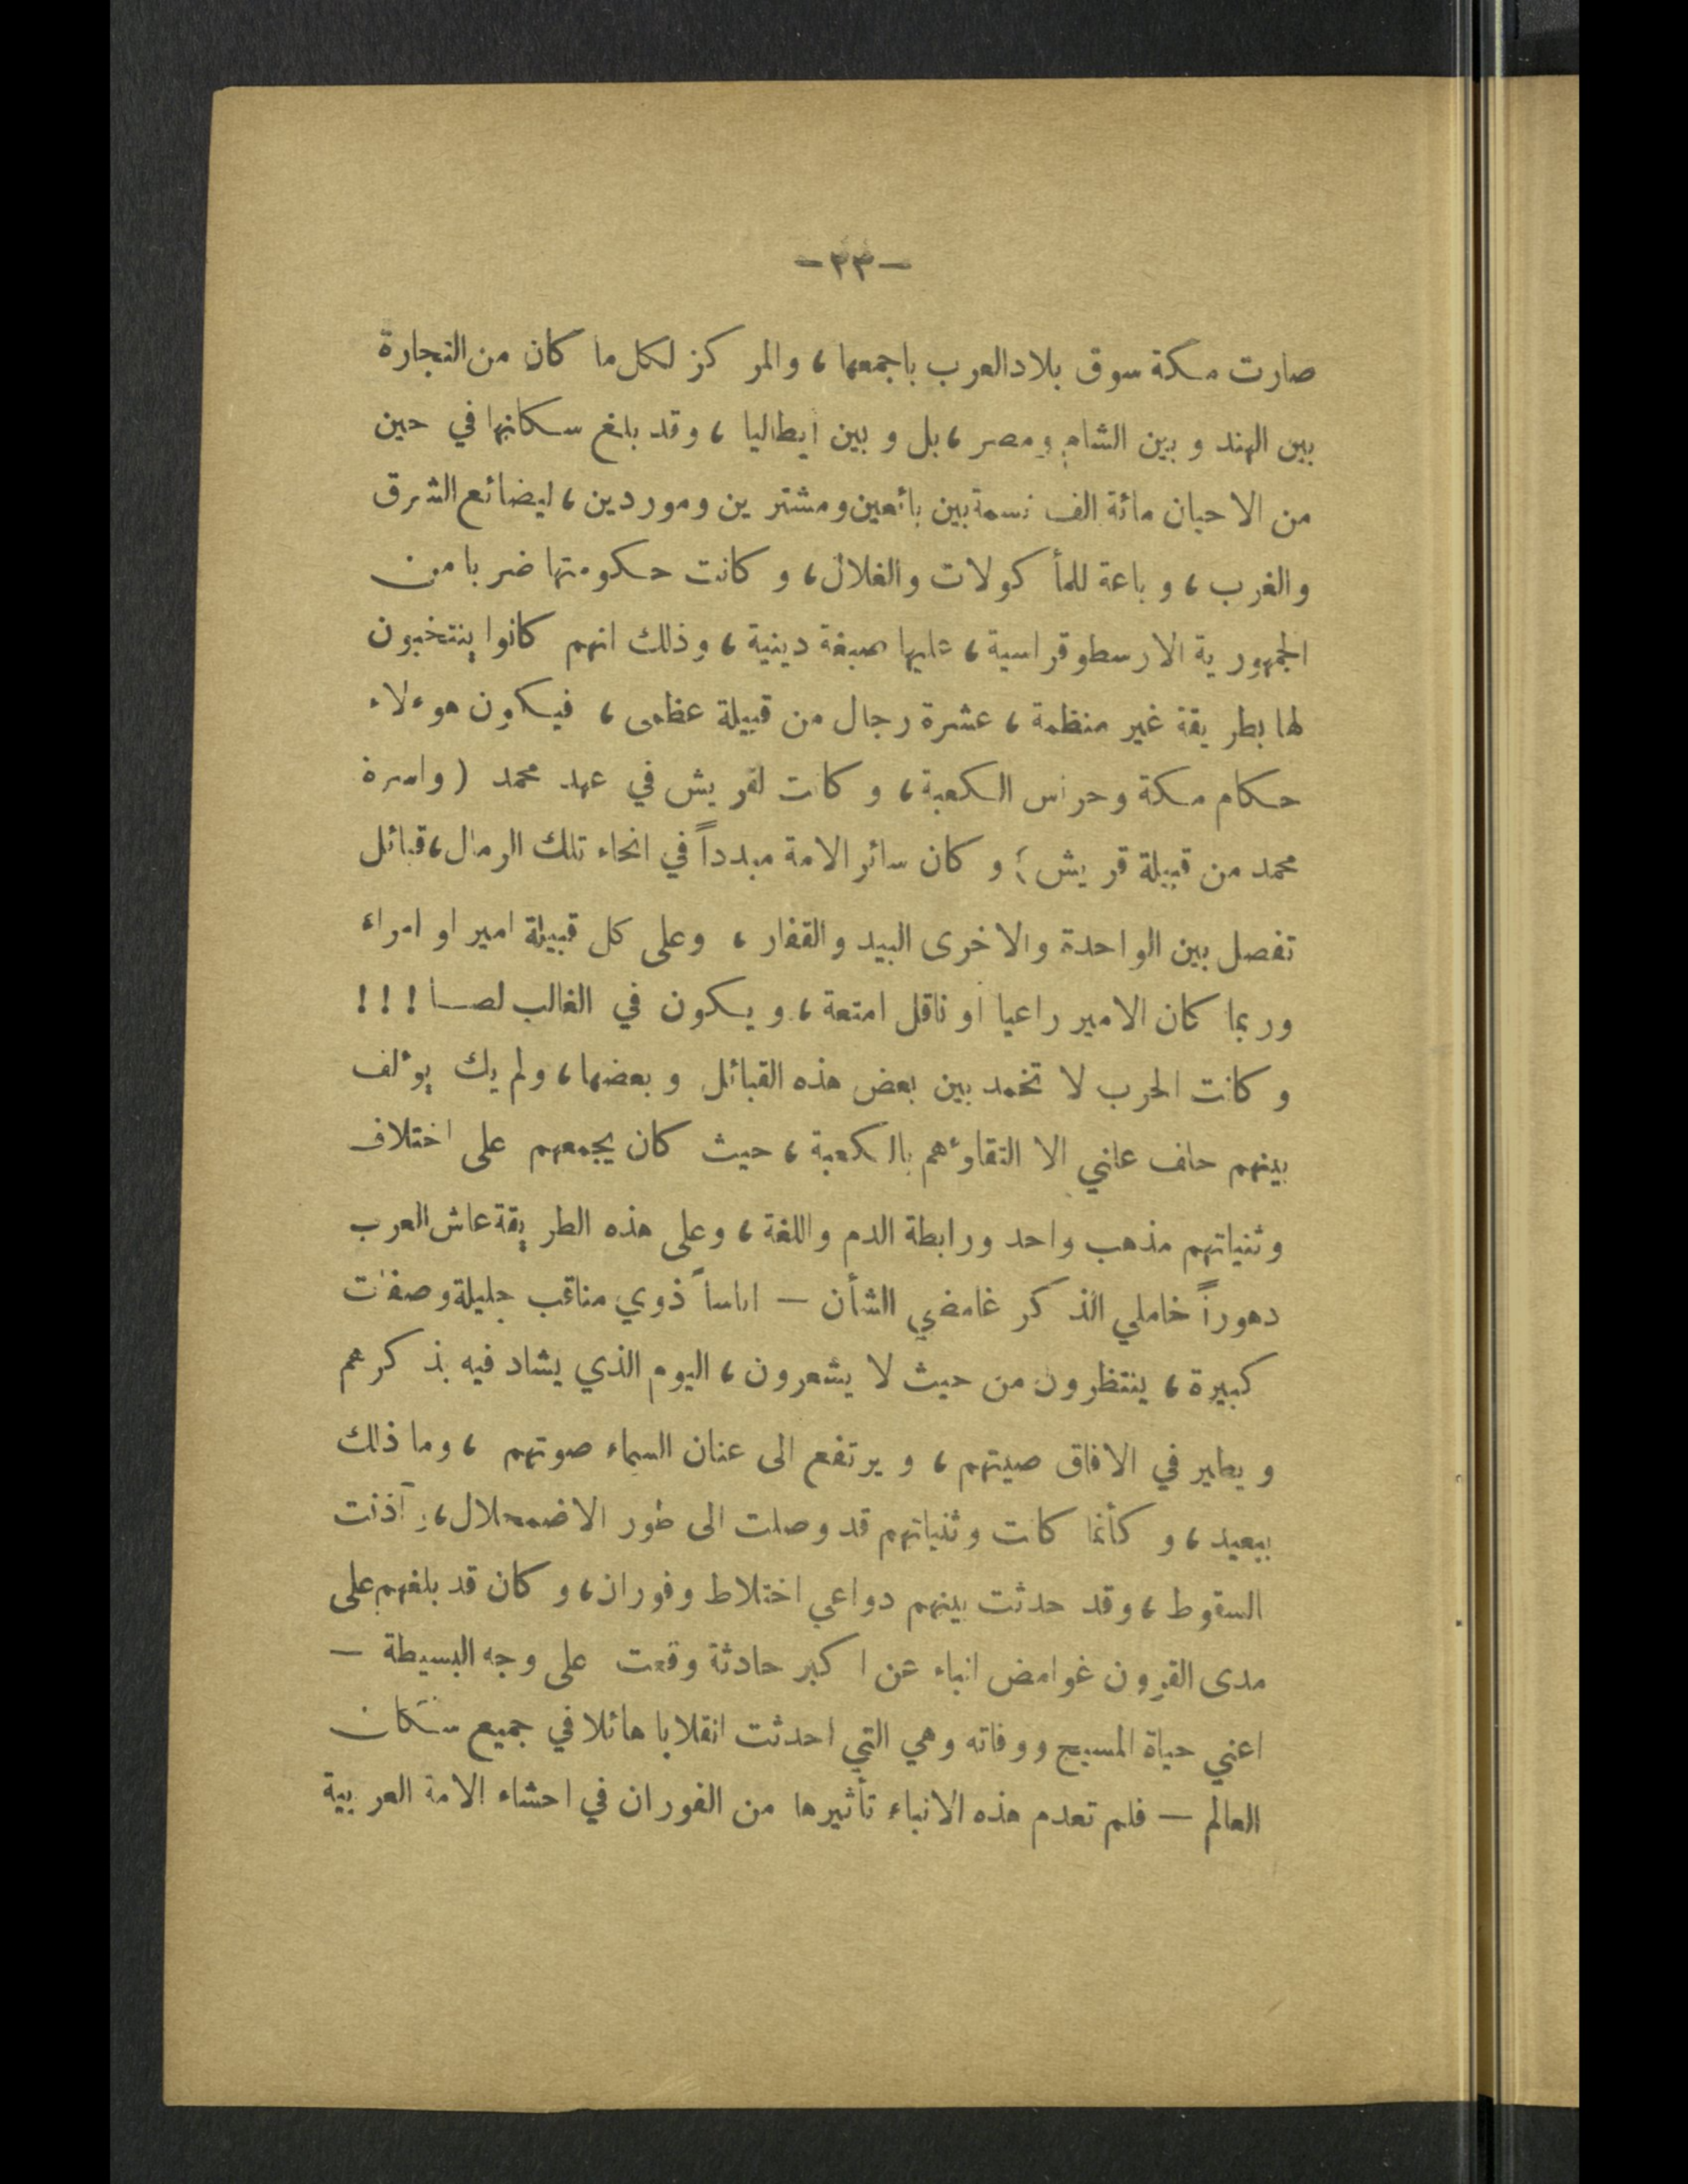 -٣٣-
صارت مكة سوق بلاد العرب باجمعها، والمركز لكل ما كان من التجارة
بين الهند وبين الشام ومصر، بل وبين ايطاليا، وقد بلغ سكانها في حين
من الاحيان مائة الف نسمة بين بائعين ومشترين وموردين، لبضائع الشرق
والغرب، وباعة للمأكولات والغلال، وكانت حكومتها ضربا من
الجمهورية الارسطوقراسية، عليها صبغة دينية، وذلك انهم كانوا ينتخبون
لها بطريقة غير منظمة، عشرة رجال من قبيلة عظمى، فيكون هوءلاء
حكام مكة وحراس الكعبة، وكانت لقريش في عهد محمد (واسرة
محمد من قبيلة قريش) وكان سائر الامة مبدداً في انحاء تلك الرمال، قبائل
تفصل بين الواحدة والاخرى البيد والقفار، وعلى كل قبيلة امير او امراء
وربما كان الامير راعيا او ناقل امتعة، ويكون في الغالب لصا!!!
وكانت الحرب لا تخمد بين بعض هذه القبائل وبعضها، ولم يك يوٴلف
بينهم حلف علني الا التقاوٴهم بالكعبة، حيث كان يجمعهم على اختلاف
وثنياتهم مذهب واحد ورابطة الدم واللغة، وعلى هذه الطريقة عاش العرب
دهوراً خاملي الذكر غامضي الشأن – اناساً ذوي مناقب جليلة وصفات
كبيرة، ينتظرون من حيث لا يشعرون، اليوم الذي يشاد فيه بذكرهم
ويطير في الافاق صيتهم، ويرتفع الى عنان السماء صوتهم، وما ذلك
ببعيد، وكأنما كانت وثنياتهم قد وصلت الى طور الاضمحلال، وآذنت
السقوط، وقد حدثت بينهم دواعي اختلاط وفوران، وكان قد بلغهم على
مدى القرون غوامض انباء عن اكبر حادثة وقعت على وجه البسيطة –
اعني حياة المسيح ووفاته وهي التي احدثت انقلابا هائلا في جميع سكان
العالم – فلم تعدم هذه الانباء تأثيرها من الفوران في احشاء الامة العربية